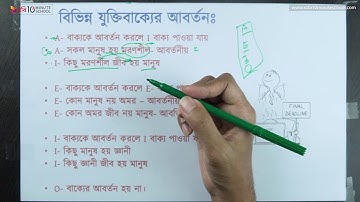 10 MINUTE SCHOOL
বিভিন্ন যুক্তিবাক্যের আবর্তনঃ
A- বাক্যকে আবর্তন করলে I বাক্য পাওয়া যায়
A- সকল মানুষ হয় মরণশীল- আবর্তনীয়
I- কিছু মরণশীল জীব হয় মানুষ
E- বাক্যকে আবর্তন করলে E-
E- কোন মানুষ নয় অমর - আবর্তনীয়
E- কোন অমর জীব নয় মানুষ- আবর্তিত
I- বাক্যকে আবর্তন করলে I বাক্য পাওয়া যায়
I- কিছু মানুষ হয় জ্ঞানী
I- কিছু জ্ঞানী জীব হয় মানুষ
O- বাক্যের আবর্তন হয় না।
FINAL
DEADLINE